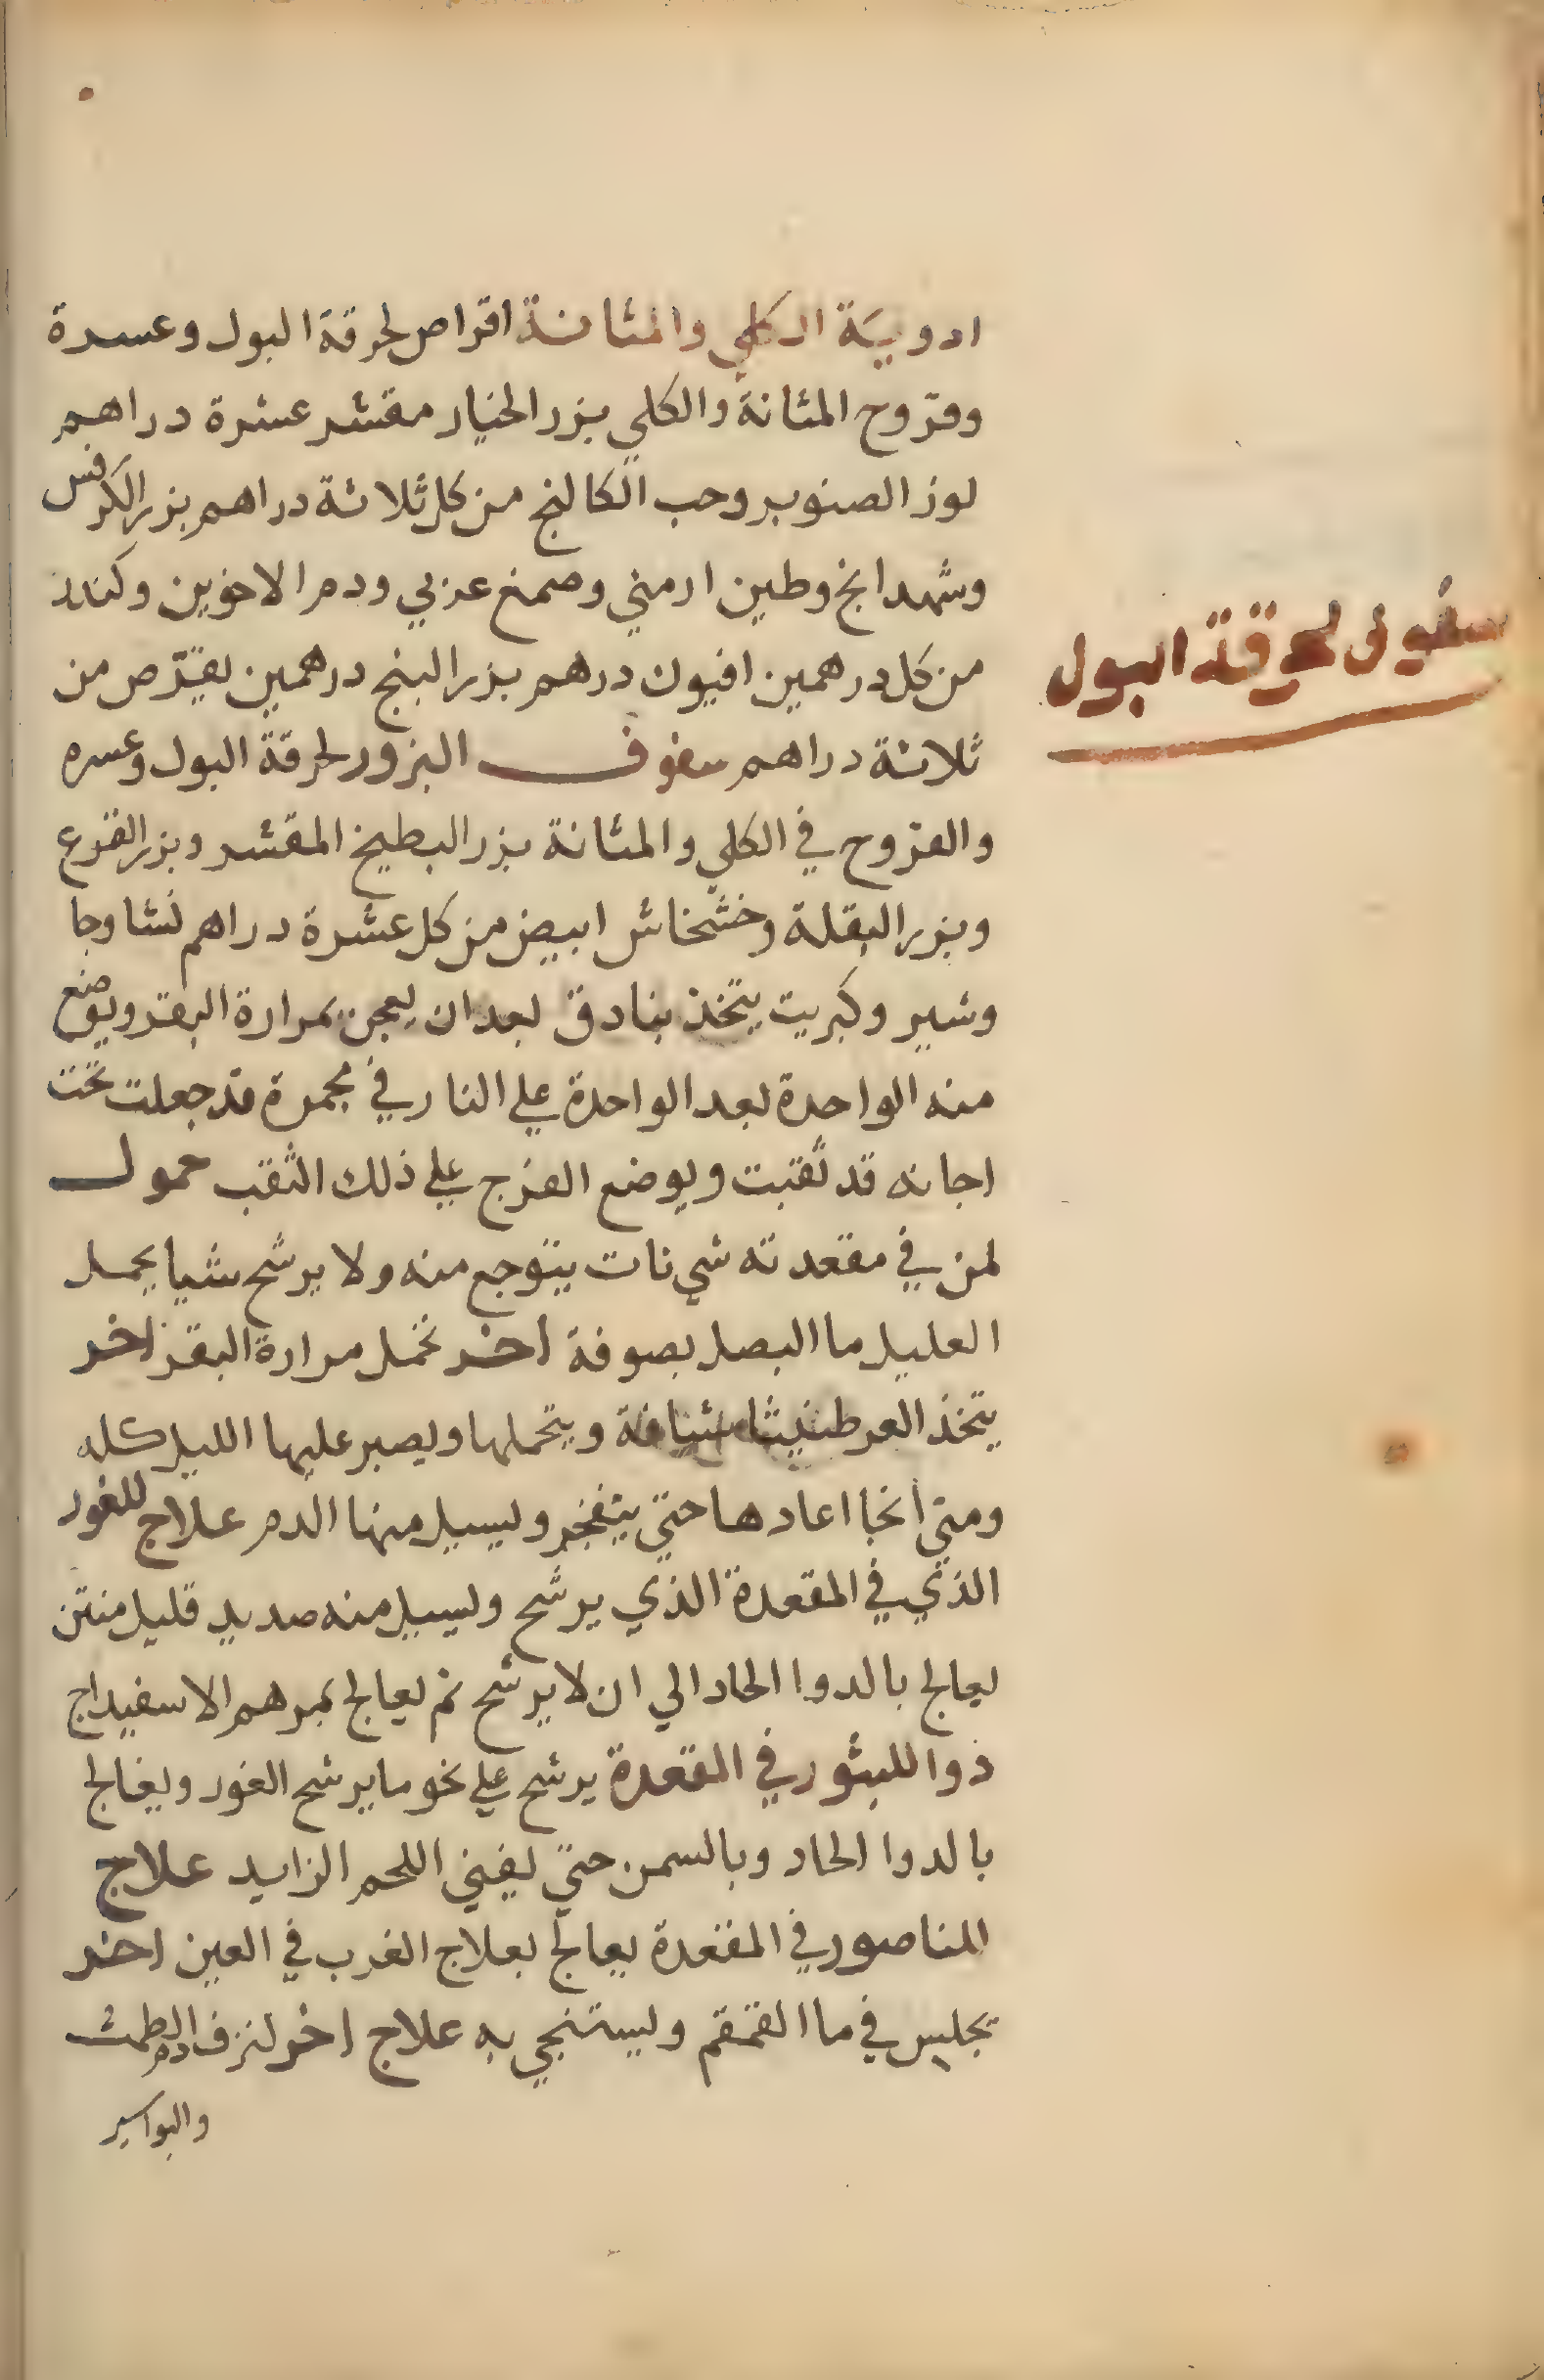 ادوية الكلي والمثانة اقراص لحرقة البول وعسرة
وقروح المثانة والكلي بزر الخيار مقشر عشرة دراهم
لوز الصنوبر وحب الكالنج من كل ثلاثة دراهم بزر الكرفس
وشهدانج وطين ارمني وصمغ عربي ودم الاخوين وكندر
من كل درهمين افيون درهم بزر البنج درهمين يقرص من
ثلاثة دراهم سفوف البزور لحرقة البول وعسره
والقروح في الكلي والمثانة بزر البطيخ المقشر وبزر القرع
وبزر البقلة وخشخاش ابيض من كل عشرة دراهم نشا وجا
وشير وكبريت يتخذ بنادق بعد ان يعجن بمرارة البقر ويوضع
منه الواحدة بعد الواحدة علي النار في مجمرة قد جعلت تحت
اجانه قد ثقبت ويوضع الفرج علي ذلك الثقب حمول
لمن في مقعدته شي نات يتوجع منه ولا يرشح شيا يحمل
العليل ما البصل بصوفة اخر تحمل مرارة البقر اخر
يتخذ العرطنيثا شيافة ويتحملها ويصبر عليها الليل كله
ومتي انحا اعادها حتي يتفجر ويسيل منها الدم علاج للغور
الذي في المقعدة الذي يرشح ويسيل منه صديد قليل منتن
يعالج بالدوا الحاد الي ان لا يرشح ثم يعالج بمرهم الاسفيداج
دوا للبثور في المقعدة يرشح علي نحو ما يرشح الغور ويعالج
بالدوا الحاد وبالسمن حتي يفني اللحم الزايد علاج
الناصور في المقعدة يعالج بعلاج الغرب في العين اخر
يجلس في ما القمقم ويستنجي به علاج اخر لنزف دم الطمث
والبواسير
سفوف لحرقة البول